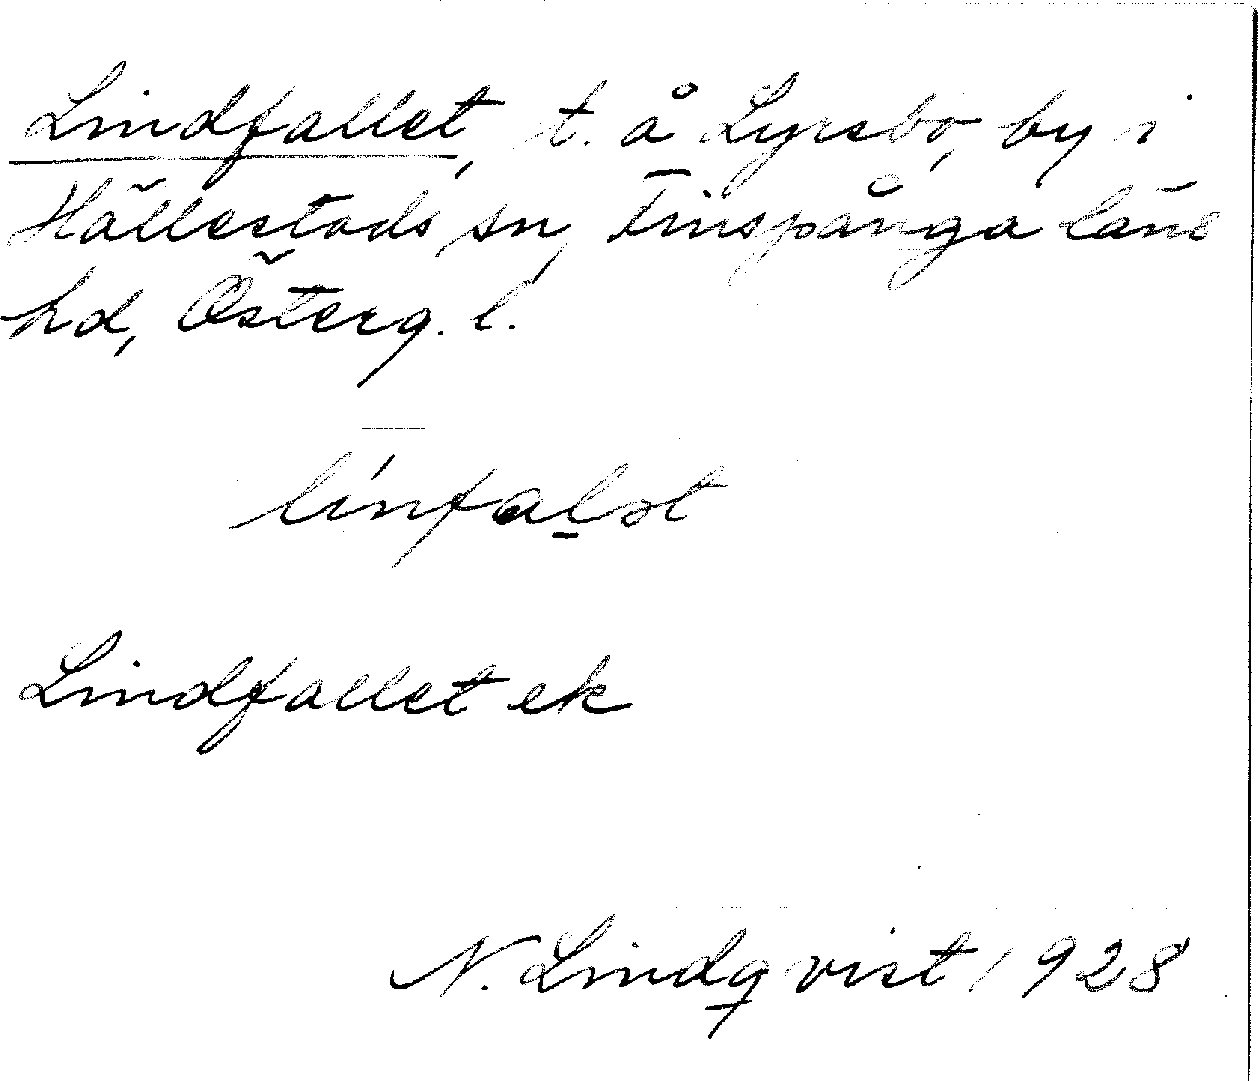 Lindfallet, t. å Lyrsbo, by i
Hällestads sn, Finspånga läns
hd, Österg. l.
línfalət
Lindfallet ek
N. Lindqvist 1928